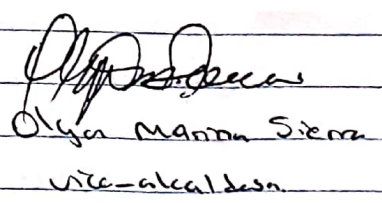 Olga Marina Sierra
vice-alcaldesa.